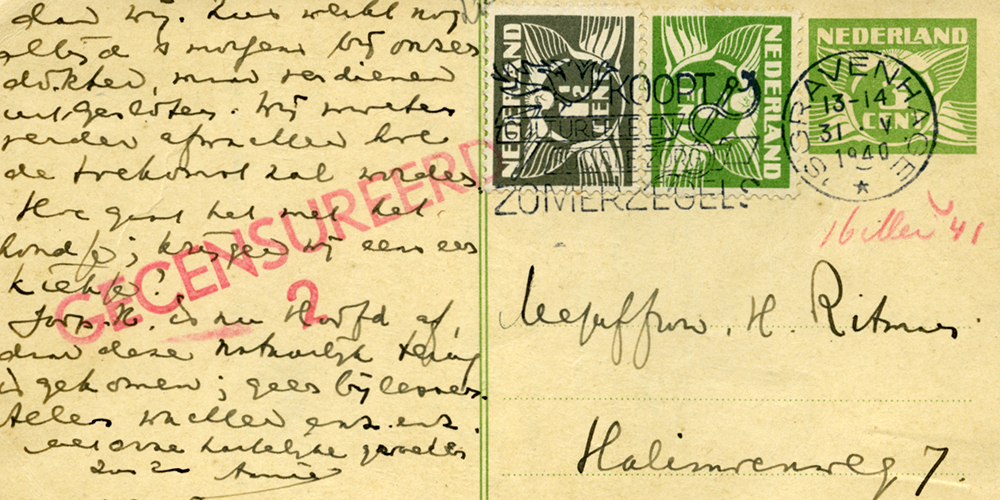 dan wij. Zus werkt nog
altijd 's morgens bij onzen
dokter, maar verdienen
uitgesloten. Wij moeten
verder afwachten hoe
de toekomst zal worden.
Hoe gaat het met het
hondje; krijgen wij eens een
kiekje?
Joop. H. is nu Hoofd af,
daar deze natuurlijk terug
is gekomen; geen bijlessen.
Alles
onze hartelijke groeten
Annie
GECENSUREERD
2
NEDERLAND
NEDERLAND
NEDERLAND
KOOPT
ZOMERZEGELS
'S GRAVENHAGE
13-14
31 V
1940
CENT
16 Mei 41
Mejuffrouw. H. Ritman
Halimoenweg 7